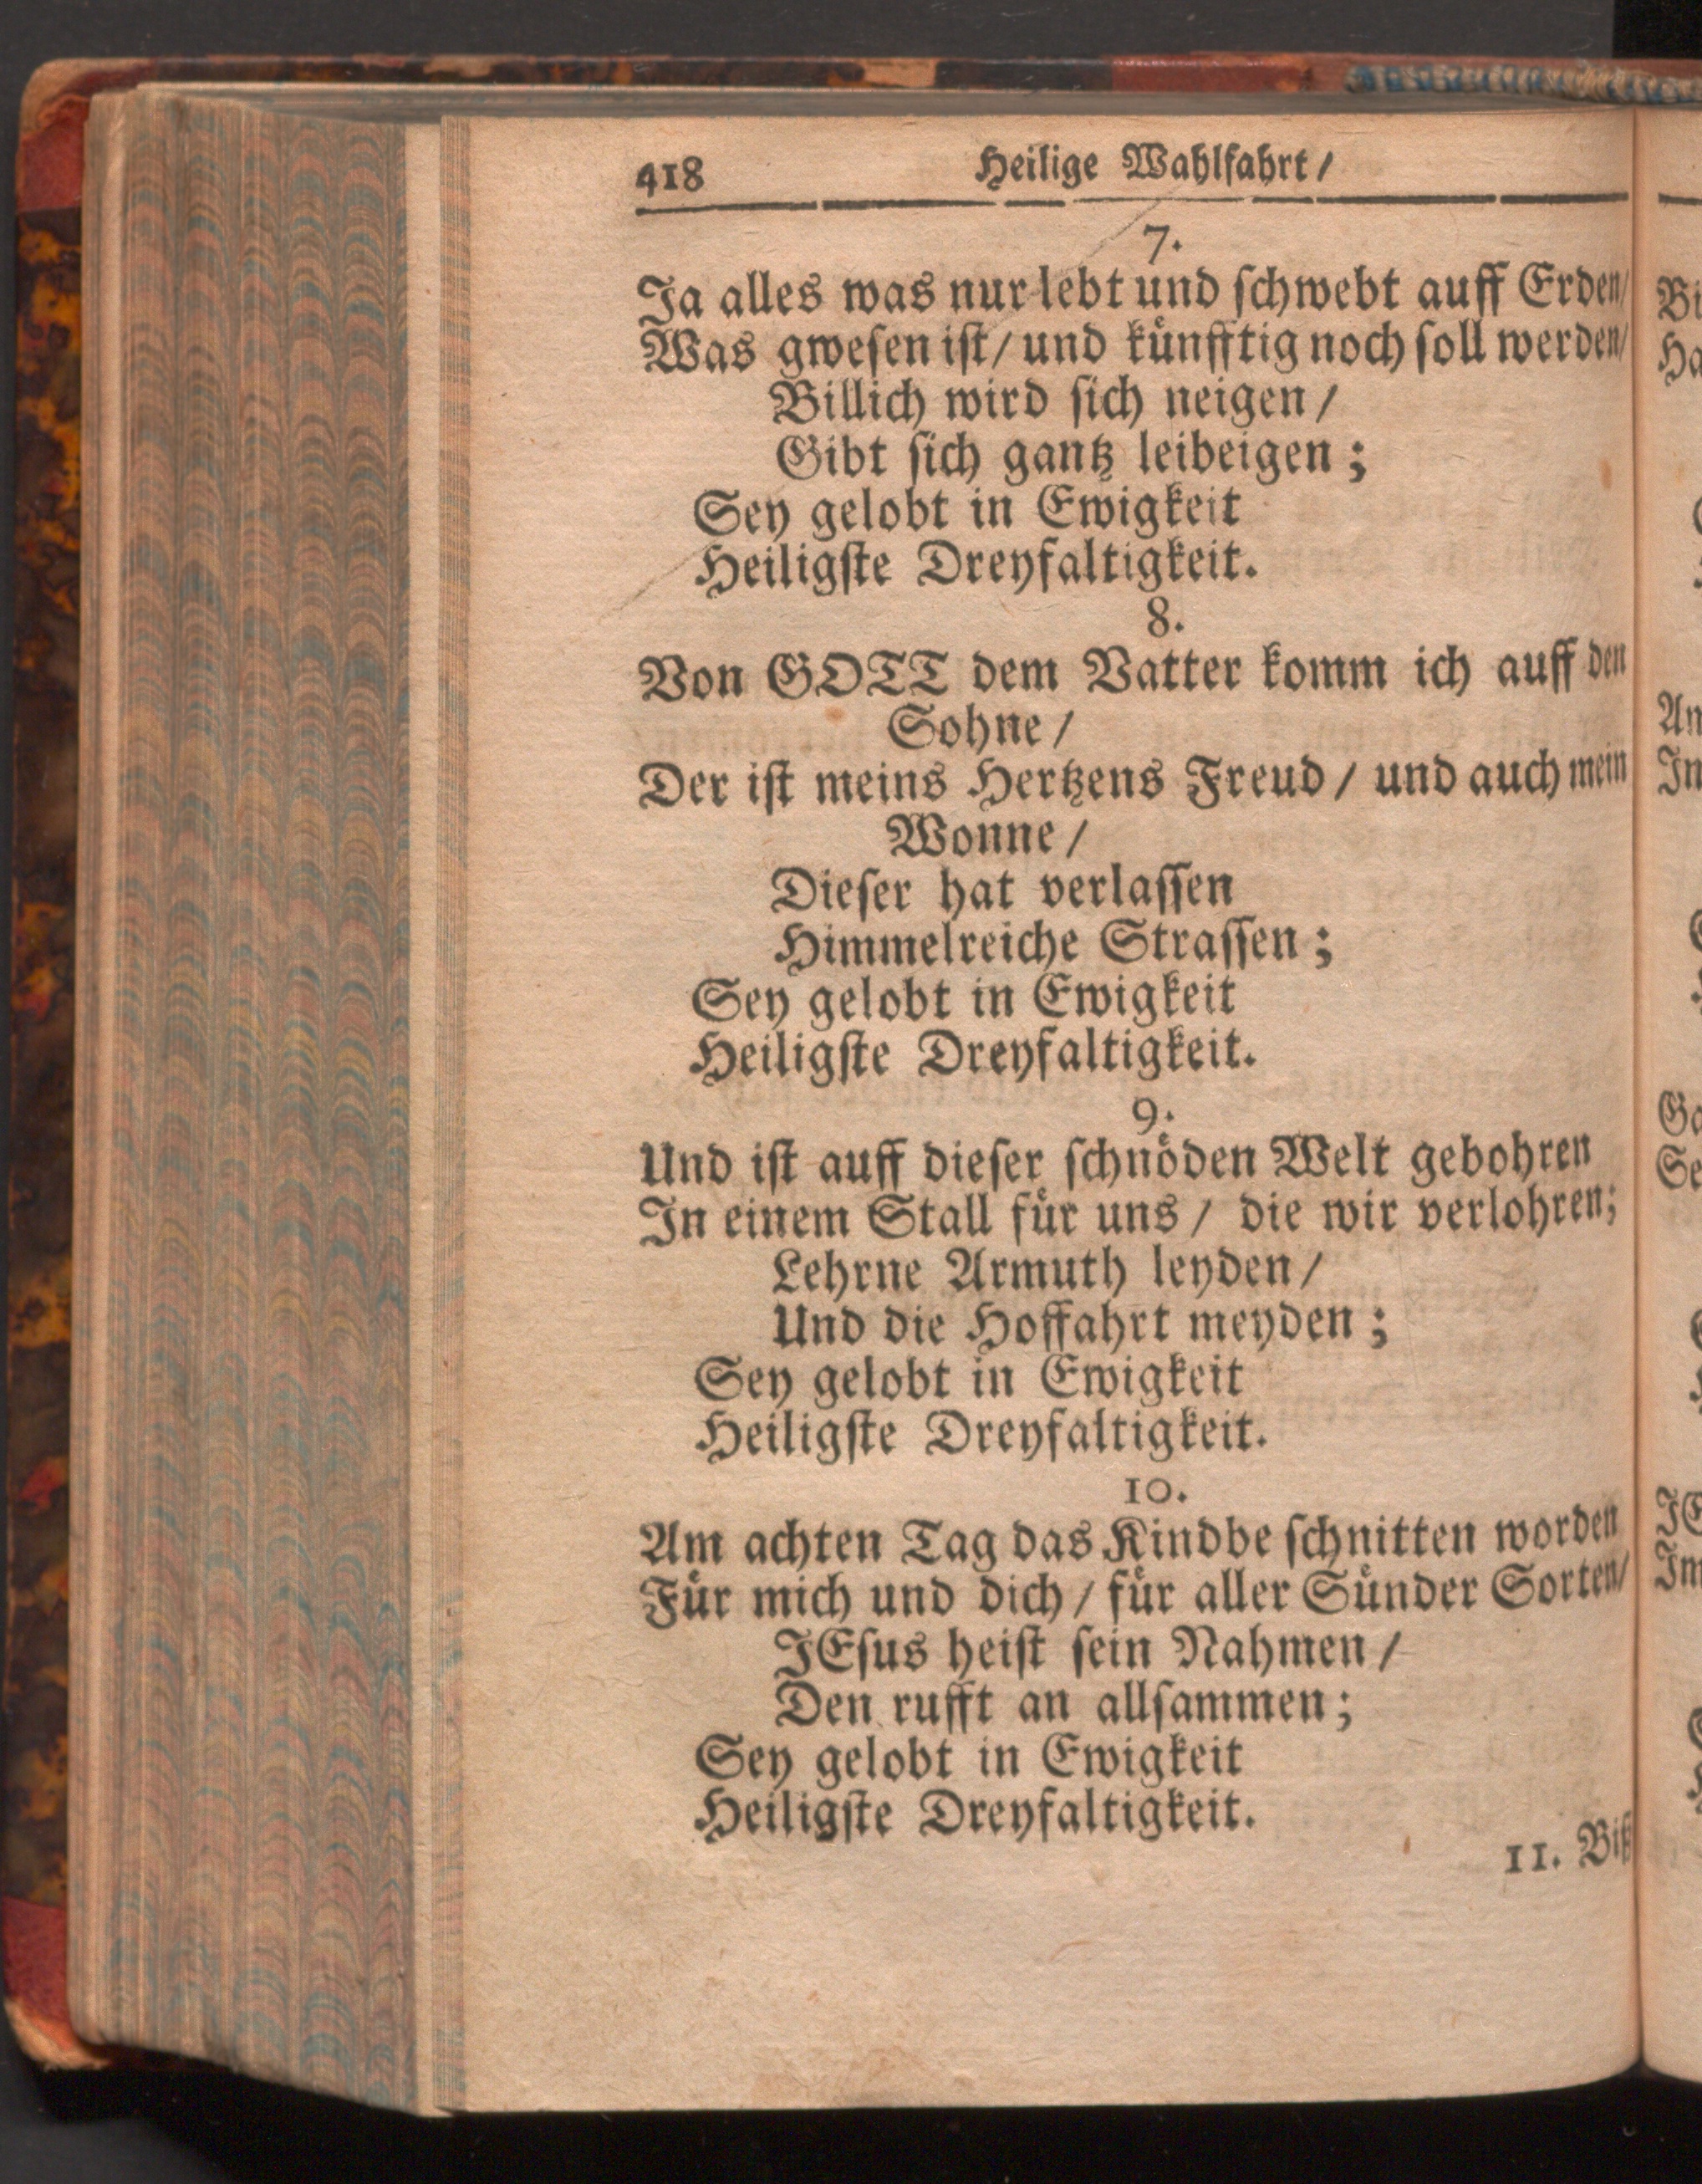 418 Heilige Wahlfahrt /
7.
Ja alles was nur lebt und ſchwebt auff Erden /
Was gweſen iſt / und künfftig noch ſoll werden /
Billich wird ſich neigen /
Gibt ſich gantz leibeigen ;
Sey gelobt in Ewigkeit
Heiligſte Dreyfaltigkeit.
8.
Von GOTT dem Vatter komm ich auff den
Sohne /
Der iſt meins Hertzens Freud / und auch mein
Wonne /
Dieſer hat verlaſſen
Himmelreiche Straſſen ;
Sey gelobt in Ewigkeit
Heiligſte Dreyfaltigkeit.
9.
Und iſt auff dieſer ſchnöden Welt gebohren
In einem Stall für uns / die wir verlohren;
Lehrne Armuth leyden /
Und die Hoffahrt meyden ;
Sey gelobt in Ewigkeit
Heiligſte Dreyfaltigkeit.
10.
Am achten Tag das Kindbe ſchnitten worden
Für mich und dich / für aller Sünder Sorten /
JEſus heiſt ſein Nahmen /
Den rufft an allſammen ;
Sey gelobt in Ewigkeit
Heiligſte Dreyfaltigkeit.
11. Biß